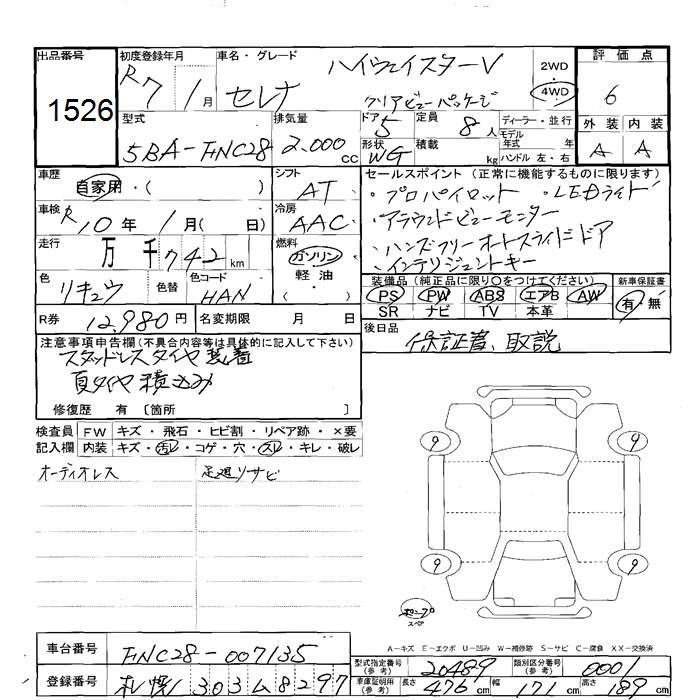 出品番号 初度登録年月 車名・グレード 評価点
1526 R7/1月 セレナ ハイウェイスターV 2WD・4WD 6
クリアビューパッケージ
型式 排気量 ドア 定員 ディーラー・並行 外装 内装
5BA-FNC28 2,000cc 5 8人 モデル年式 年 A A
形状 WG 積載 kg ハンドル 左・右
車歴 シフト セールスポイント (正常に機能するものに限ります)
自家用・( ) AT ・プロパイロット ・LEDライト
車検 冷房 ・アラウンドビューモニター
R10年/1月( 日) AAC ・ハンズフリーオートスライドドア
走行 燃料 ・インテリジェントキー
万千742km ガソリン
軽油・( )
色 色替 色コード 装備品(純正品に限り○をつけてください) 新車保証書
リキュウ HAN PS PW ABS エアB AW 有・無
SR ナビ TV 本革
R券 12,980円 名変期限 月 日 後日品
保証書、取説
注意事項申告欄(不具合内容等は具体的に記入して下さい)
スタッドレスタイヤ装着
夏タイヤ積込み
修復歴 有〔箇所 〕
検査員 FW キズ・飛石・ヒビ割・リペア跡・×要
記入欄 内装 キズ・汚レ・コゲ・穴・スレ・キレ・破レ
オーディオレス 足廻リサビ
9 9
9 9
スペア
A-キズ E-エクボ U-凹み W-補修跡 S-サビ C-腐食 XX-交換済
車台番号 FNC28-007135
型式指定番号(参考) 20489 類別区分番号(参考) 0001
登録番号 札幌 303ム8297
車庫証明用(参考) 長さ 476cm 幅 171cm 高さ 189cm